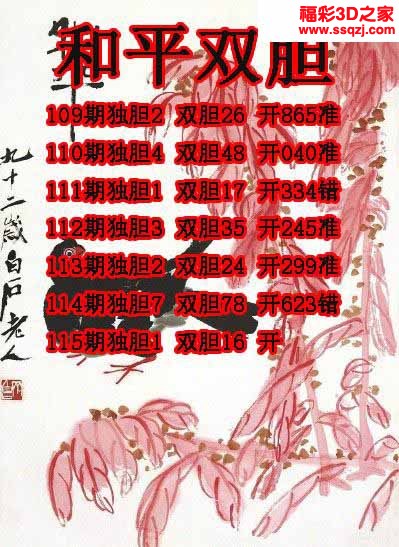 福彩3D之家
www.ssqzj.com
和平双胆
109期独胆2 双胆26 开865准
110期独胆4 双胆48 开040准
111期独胆1 双胆17 开334错
112期独胆3 双胆35 开245准
113期独胆2 双胆24 开299准
114期独胆7 双胆78 开623错
115期独胆1 双胆16 开
九十二岁白石老人